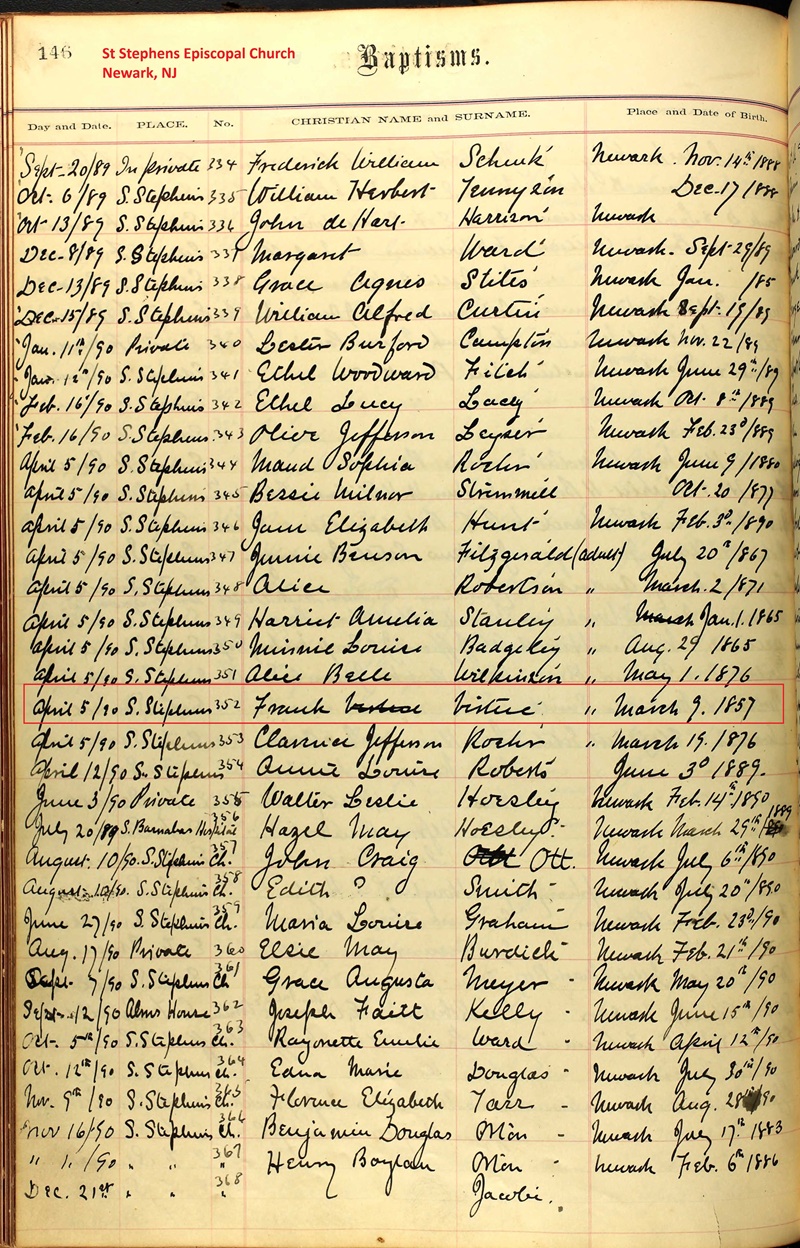 146
St Stephens Episcopal Church
Newark, NJ
Baptisms.
Day and Date. PLACE. No. CHRISTIAN NAME and SURNAME. Place and Date of Birth.
Sept-20/89 In private 334 Frederick William Schenk Newark. Nov. 14th 1888
Oct-6/89 S. Stephens 335 William Herbert Tennyson Dec-17/1888
Oct 13/89 S. Stephens 336 John de Hart Harrison Newark
Dec-8/89 S. Stephens 337 Margaret Ward Newark- Sept-29/89
Dec-13/89 S. Stephens 338 Grace Agnes Stites Newark Jan. /85
Dec-15/89 S. Stephens 339 William Alfred Curtis Newark Sept-19/89
Jan. 11th/90 Private 340 Lester Burford Compton Newark Nov. 22/89
Jan. 12th/90 S. Stephens 341 Ethel Woodward Fitch Newark June 29th/89
Feb. 16/90 S. Stephens 342 Ethel Lucy Lacey Newark Oct. 8th/889
Feb. 16/90 S. Stephens 343 Olive Jefferson Leyser Newark Feb. 23d/889
April 5/90 S. Stephens 344 Maud Sophia Newark June 9/1880
April 5/90 S. Stephens 345 Bessie Milnor Oct-20/877
April 5/90 S. Stephens 346 Jane Elizabeth Hunt Newark Feb. 3d/890
April 5/90 S. Stephens 347 Jennie Benson Fitzgerald (adult) July 20th/867
April 5/90 S. Stephens 348 Alice Robertson " March. 2/871
April 5/90 S. Stephens 349 Harriet Amelia Stanley " March Jan. 1. 1865
April 5/90 S. Stephens 350 Minnie Louise Badgeley " Aug. 29 1865
April 5/90 S. Stephens 351 Alice Belle Wilkinson " May 1. 1876
April 5/90 S. Stephens 352 Frank Vertue Virtue " March 9. 1857
April 5/90 S. Stephens 353 Clarence Jefferson " March 19. 1876
April 12/90 S. Stephens 354 Annie Louise Roberts June 3d 1889.
June 3/90 Private 355 Walter Leslie Hoesley Newark Feb. 14th 1890
July 20/89 S. Barnabas Hospital 356 Hazel May Hoesley Newark March 29th/ 1889
August. 10/90. S. Stephens Ch. 357 John Craig Ott. Newark July 6th/890
August. 10/90. S. Stephens Ch. 358 Edith ? Smith Newark July 20th/890
June 27/90 S. Stephens Ch. 359 Maria Louise Graham Newark Feb. 23d/90
Aug. 17/90 Private 360 Elsie May Burdick Newark Feb. 21th/90
Sept. 7/90 S. Stephens Ch 361 Grace Augusta Meyer - Newark May 20th/90
Sept. 12/90 Alms House 362 Joseph Kelly - Newark June 15th/90
Oct. 5th/90 S. Stephens Ch. 363 Rayonette Emilie Ward - Newark April 12th/90
Oct. 12th/90 S. Stephens Ch. 364 Edna Marie Douglas - Newark July 30th/90
Nov. 9th/90 S. Stephens Ch. 365 Florence Elizabeth Tarr - Newark Aug. 28 /90
Nov 16/90 S. Stephens Ch. 366 Benjamin Douglas Mon - Newark July 17th 1883
" " /90 " " 367 Henry Boylan Mon - Newark Feb. 6th 1886
Dec. 21st " " " 368 Jacobi.